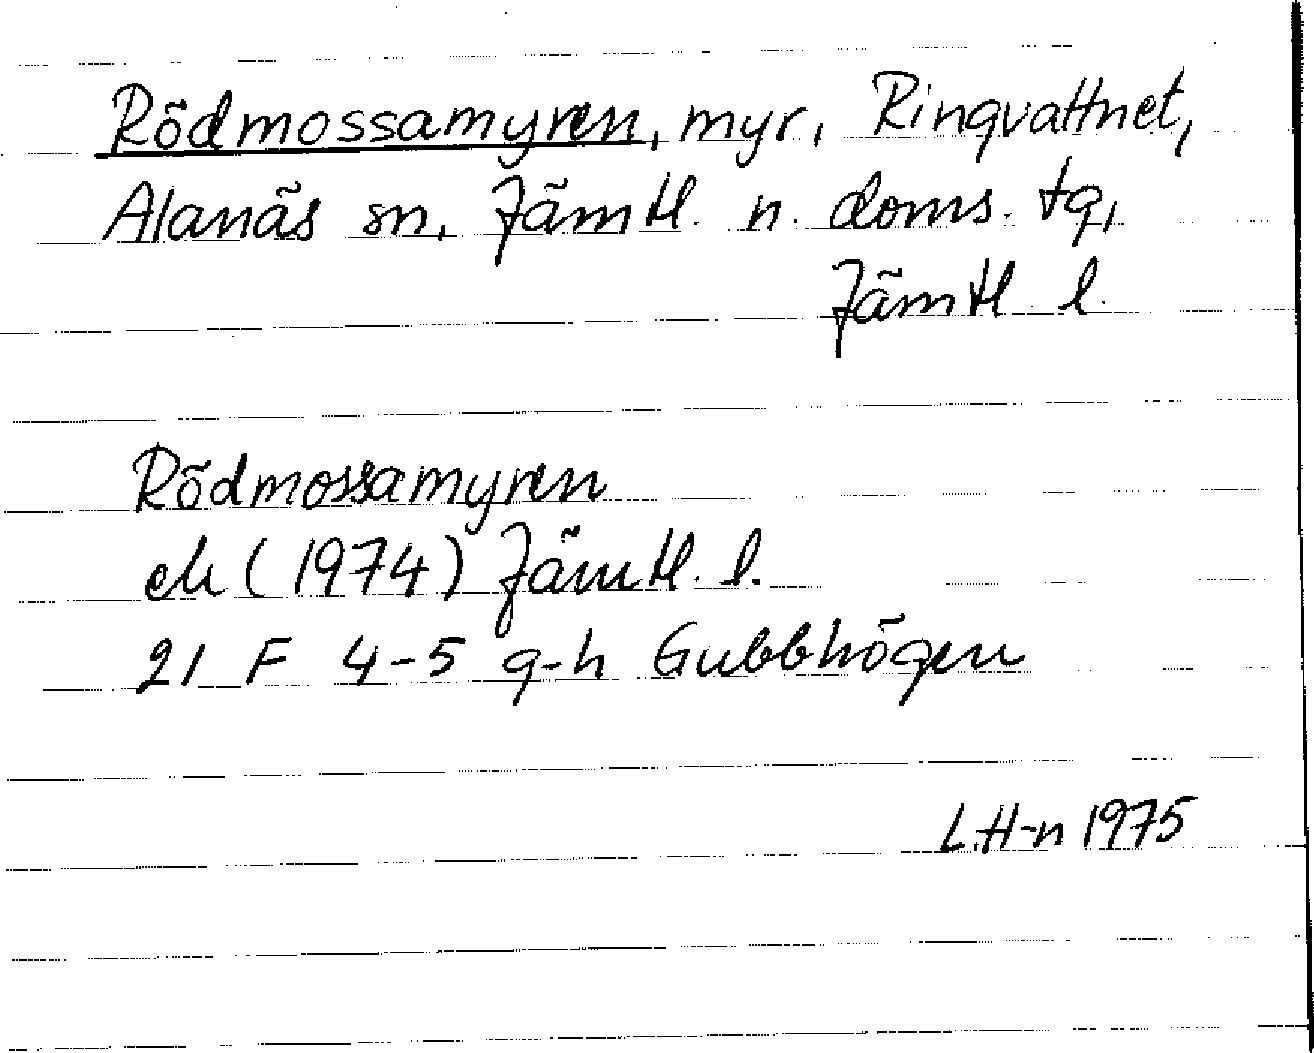 Rödmossamyren, myr, Ringvattnet,
Alanäs sn, Jämtl. n. doms. tg,
Jämtl l.
Rödmossamyren
ek (1974) Jämtl. l.
21 F 4-5 g-h Gubbhögen
L.H-n 1975